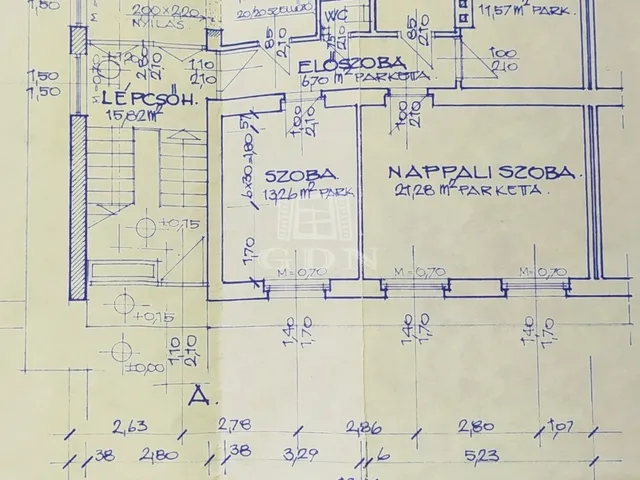 1,50
200×220
NYÍLÁS
20/20 SZELLŐZŐ
WC
11,57 m² PARK.
1,50
1,50
1,20
2,80
2,10
1,10
2,10
85
2,10
75
2,10
85
2,10
100
210
ELŐSZOBA
6,70 m² PARKETTA.
LÉPCSŐH.
15,82 m²
57
1,00
2,10
1,00
2,10
6×30=1,80
SZOBA
13,26 m² PARK.
NAPPALI SZOBA.
21,28 m² PARKETTA.
+0,15
1,70
GDN
M=0,70
M=0,70
M=0,70
+0,15
±0,00
1,10
2,10
1,40
1,70
1,40
1,70
1,40
1,70
A.
2,63
2,78
2,86
2,80
1,07
38
2,80
38
3,29
6
5,23